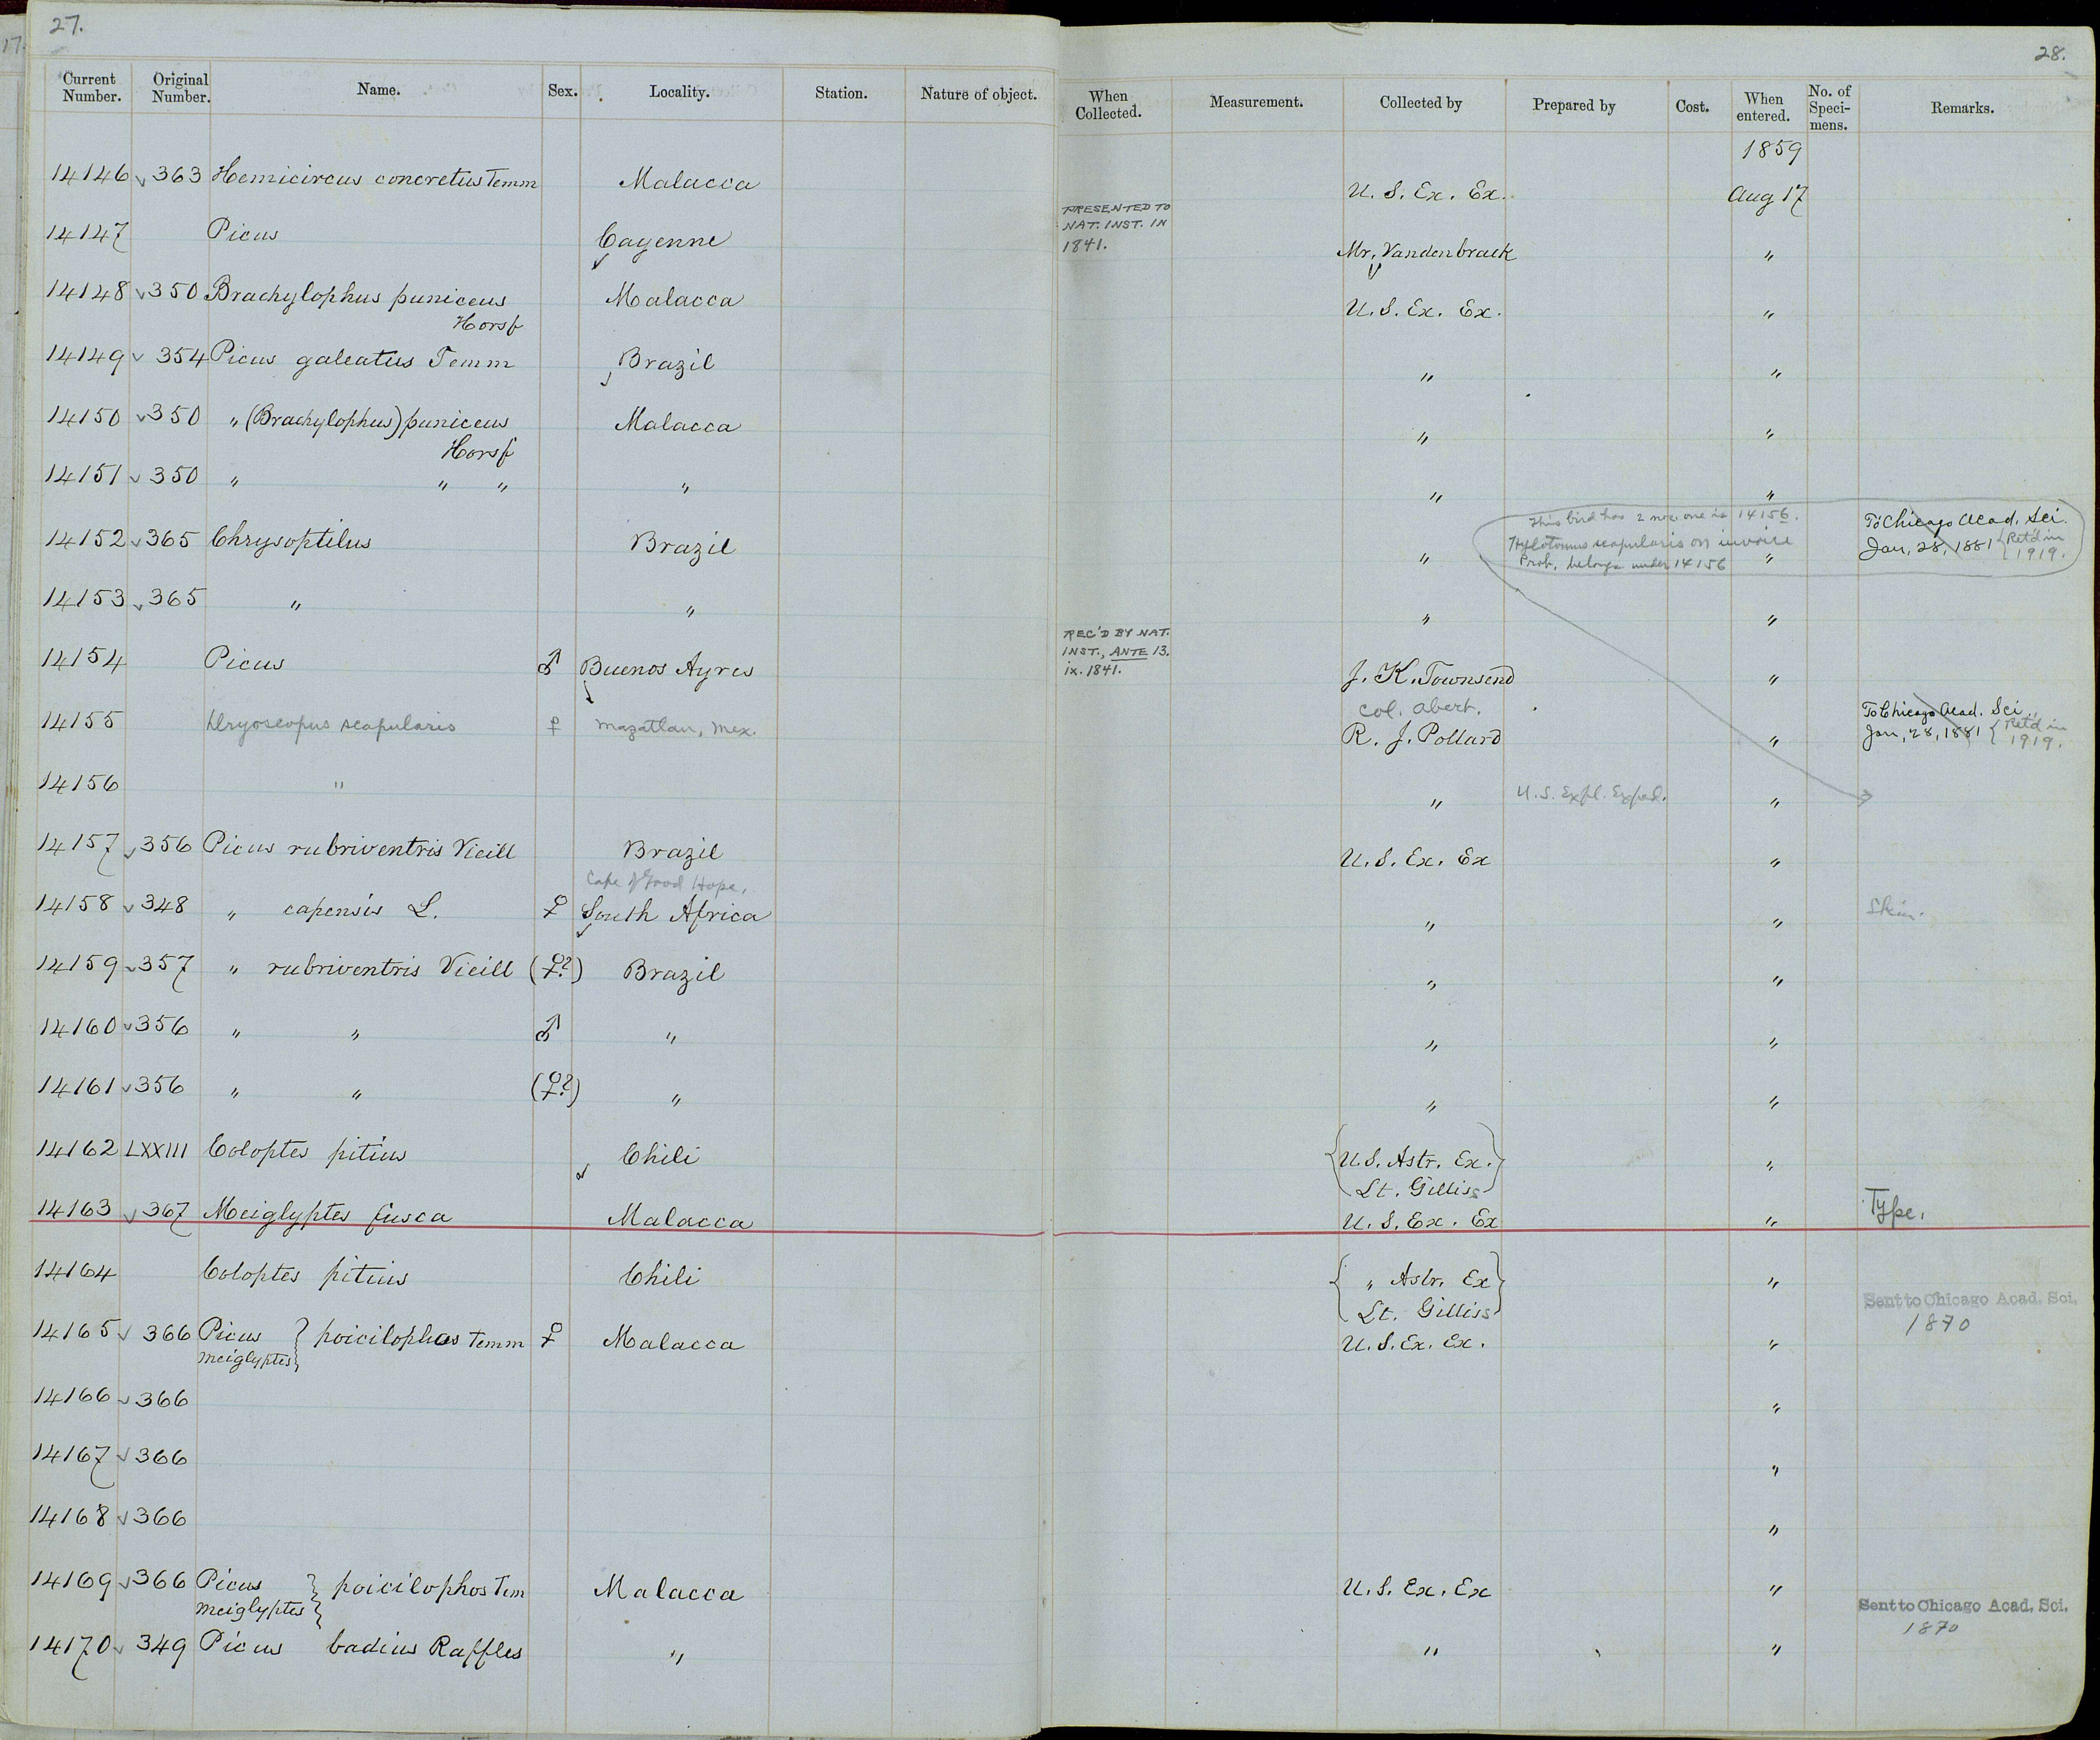 27.
28.
17.
Current Number. Original Number. Name. Sex. Locality. Station. Nature of object. When Collected. Measurement. Collected by Prepared by Cost. When entered. No. of Speci- mens. Remarks.
1859
14146 363 Hemicircus concretus Temm Malacca U. S. Ex. Ex. Aug 17
14147 Picus Cayenne PRESENTED TO NAT. INST. IN 1841. Mr. Vandenbraek "
14148 350 Brachylophus puniceus Malacca U. S. Ex. Ex. "
Horsf
14149 354 Picus galeatus Temm Brazil " "
14150 350 " (Brachylophus) puniceus Malacca " "
Horsf
14151 350 " " " " " "
This bird has 2 nos. one is 14156.
Hylotomus scapularis on invoice
Prob. belongs under 14156
14152 365 Chrysoptilus Brazil " " To Chicago Acad. Sci. Jan, 28, 1881 { Ret'd in 1919.
14153 365 " " " "
14154 Picus ♂ Buenos Ayres REC'D BY NAT. INST., ANTE 13. ix. 1841. J. K. Townsend "
Col. Abert.
14155 Dryoscopus scapularis ♀ Mazatlan, Mex. R. J. Pollard " To Chicago Acad. Sci. Jan, 28, 1881 { Ret'd in 1919.
14156 " " U. S. Expl. Exped. "
14157 356 Picus rubriventris Vieill Brazil U. S. Ex. Ex "
Cape of Good Hope,
14158 348 " capensis L. ♀ South Africa " " Skin.
14159 357 " rubriventris Vieill (♀?) Brazil " "
14160 356 " " ♂ " " "
14161 356 " " (♀?) " " "
14162 LXXIII Coloptes pitius Chili {U. S. Astr. Ex.} "
Lt. Gilliss
14163 367 Meiglyptes fusca Malacca U. S. Ex. Ex " Type.
14164 Coloptes pitius Chili { " Astr. Ex} "
Lt. Gilliss
Sent to Chicago Acad. Sci.
1870
14165 366 Picus } poicilophos Temm ♀ Malacca U. S. Ex. Ex. "
Meiglyptes
14166 366 "
14167 366 "
14168 366 "
14169 366 Picus } poicilophos Tem Malacca U. S. Ex. Ex "
Meiglyptes
Sent to Chicago Acad. Sci.
1870
14170 349 Picus badius Raffles " " "